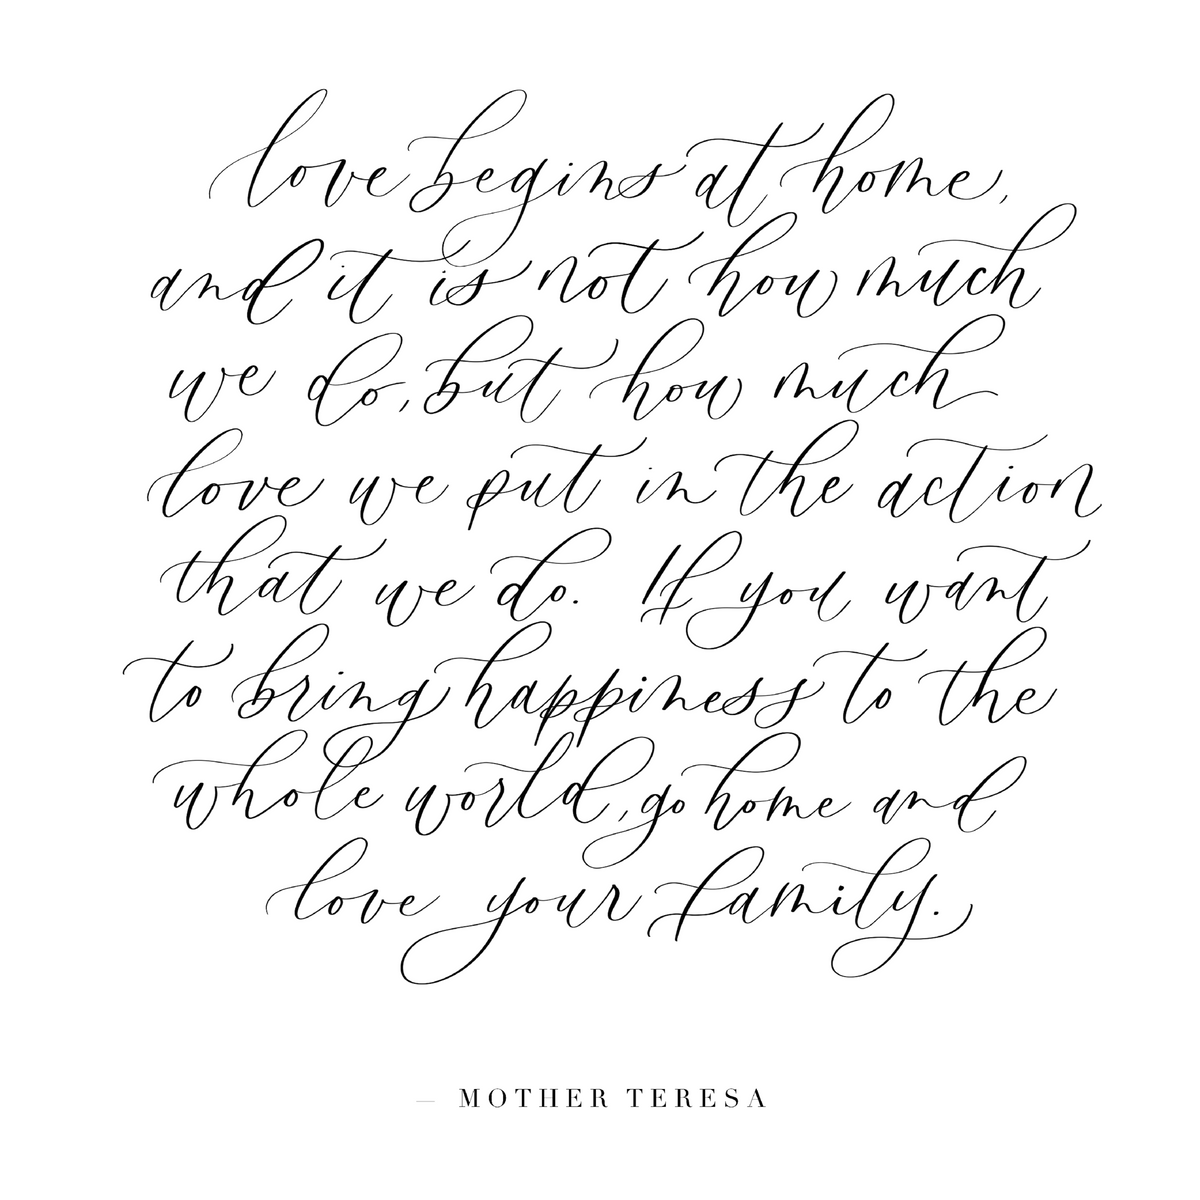 love begins at home,
and it is not how much
we do, but how much
love we put in the action
that we do. If you want
to bring happiness to the
whole world, go home and
love your family.
— MOTHER TERESA